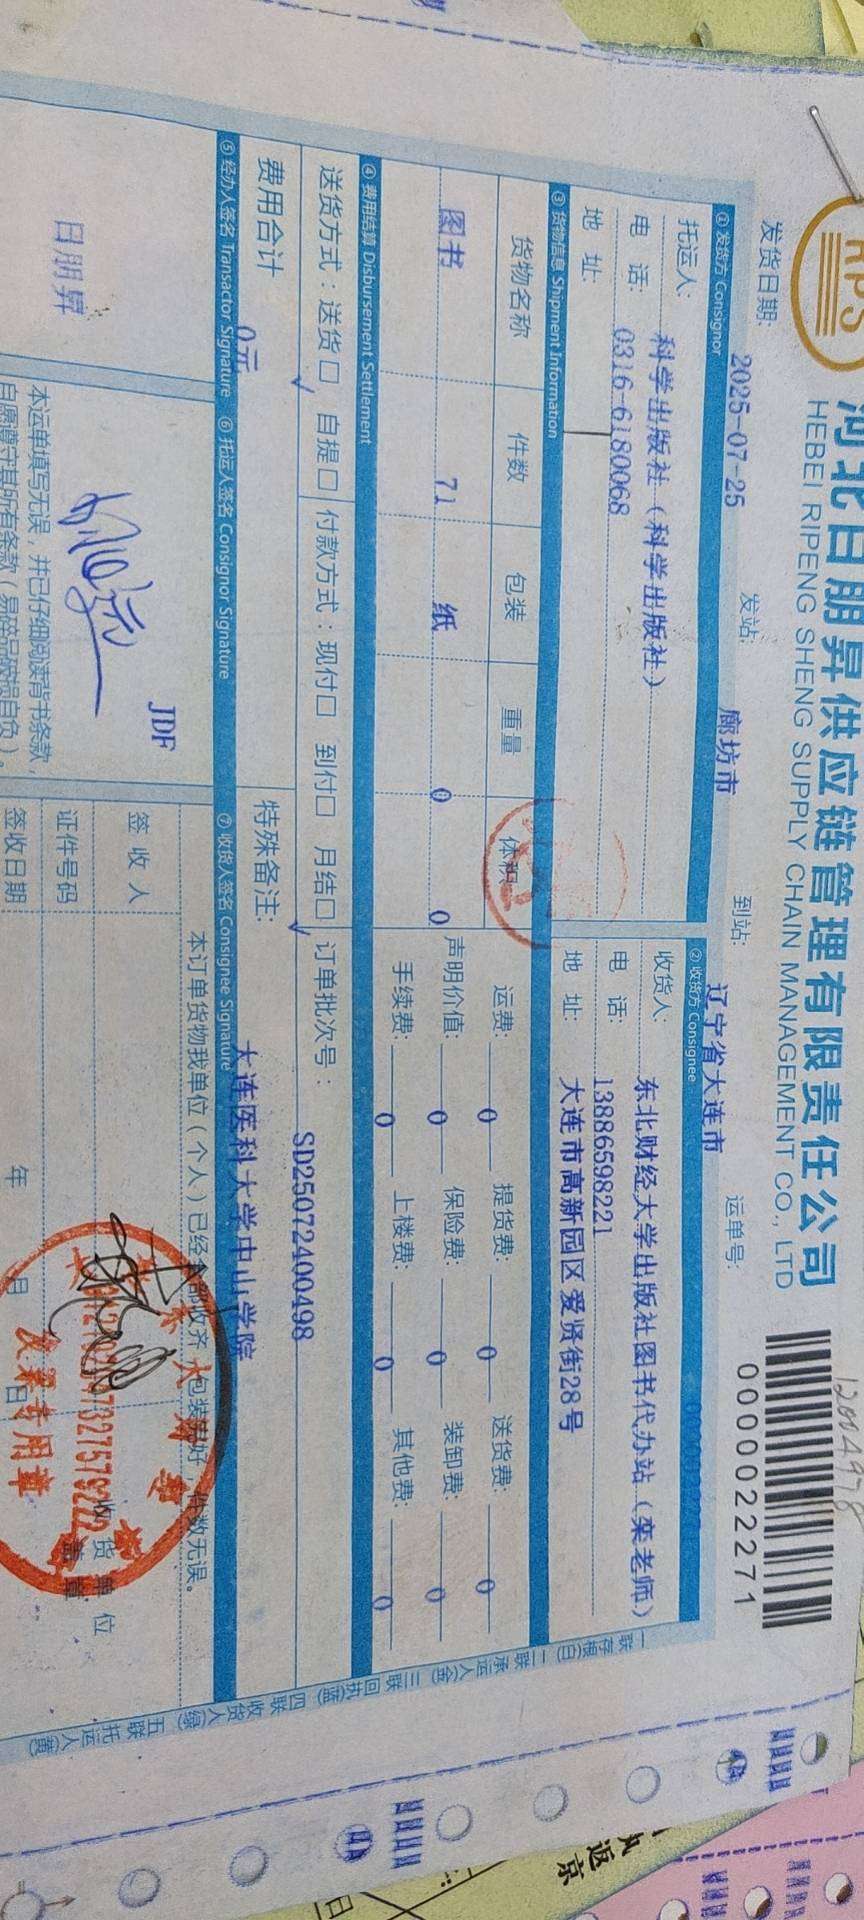 RPS
河北日朋昇供应链管理有限责任公司
HEBEI RIPENG SHENG SUPPLY CHAIN MANAGEMENT CO., LTD
0000022271
发货日期: 2025-07-25 发站: 廊坊市 到站: 辽宁省大连市 运单号:
① 发货方 Consignor
托运人: 科学出版社(科学出版社)
电 话: 0316-6180068
地 址:
② 收货方 Consignee
收货人: 东北财经大学出版社图书代办站(栾老师)
电 话: 13886598221
地 址: 大连市高新园区爱贤街28号
③ 货物信息 Shipment Information
货物名称 件数 包装 重量 体积
图书 71 纸 0 0
运费: 0 提货费: 0 送货费: 0
声明价值: 0 保险费: 0 装卸费: 0
手续费: 0 上楼费: 0 其他费: 0
④ 费用结算 Disbursement Settlement
送货方式:送货□ 自提□ 付款方式:现付□ 到付□ 月结□ 订单批次号: SD25072400498
√ √
费用合计 0元
特殊备注: 大连医科大学中山学院
⑤ 经办人签名 Transactor Signature ⑥ 托运人签名 Consignor Signature ⑦ 收货人签名 Consignee Signature
日朋昇
JDF
本运单填写无误,并已仔细阅读背书条款,
自愿遵守其所有条款(易碎品破损自负)。
本订单货物我单位(个人)已经全部收齐,包装完好,件数无误。
签 收 人
证件号码
签收日期 年 月 日
收 货 单 位
盖 章
发票专用章
一联存根(白) 二联承运人(金) 三联回执(蓝) 四联收货人(绿) 五联托运人(黄)
返京